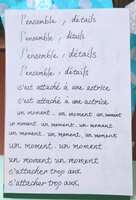 l'ensemble, détails
l'ensemble, détails
l'ensemble, détails
l'ensemble, détails
s'est attaché à une actrice
s'est attaché à une actrice
un moment, un moment, un moment
un moment, un moment, un moment
un moment, un moment
un moment un moment
s'attacher trop aux
s'attacher trop aux